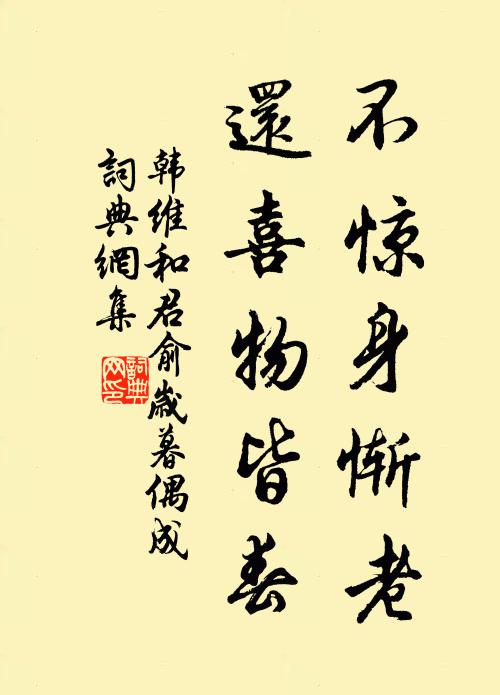 不惊身惭老
還喜物皆春
韩维和君俞嵗暮偶成
詞典網集
詞典网印